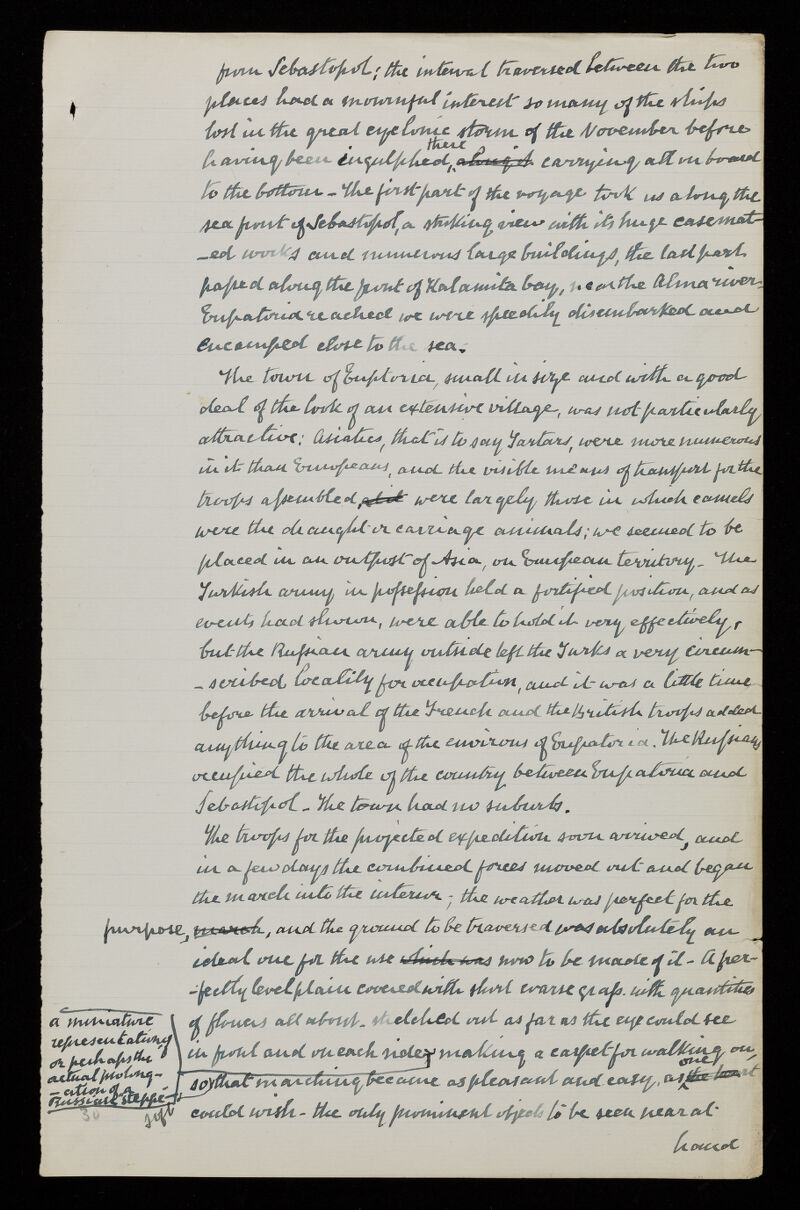 from Sebastopol; the interval traversed between the two
places had a mournful interest so many of the ships
lost in the great cyclonic storm of the November before
having been ingulphed, there along it carrying all on board
to the bottom - The first part of the voyage took us along the
sea front of Sebastopol, a striking view with its huge casemat-
-ed works and numerous large buildings, the last part
passed along the front of Kalamita bay, near the Alma river-
Eupatoria reached we were speedily disembarked and
encamped close to the sea.
The town of Euptoria, small in size and with a good
deal of the look of an extensive village, was not particularly
attractive; Asiatics, that is to say Tartars, were more numerous
in it than Europeans, and the visible means of transport for the
troops assembled, at it were largely those in which camels
were the draught or carriage animals; we seemed to be
placed in an outpost of Asia, on European territory - The
Turkish army in possession held a fortified position, and as
events had shown, were able to hold it very effectively,
but the Russian army outside left the Turks a very circum-
-scribed locality for occupation, and it was a little time
before the arrival of the French and the British troops added
anything to the area of the environs of Eupatoria. The Russians
occupied the whole of the country between Eupatoria and
Sebastopol - The town had no suburbs.
The troops for the projected expedition soon arrived, and
in a few days the combined forces moved out and began
the march into the interior; the weather was perfect for the
purpose, march, and the ground to be traversed was absolutely an
ideal one for the use which was now to be made of it - A per-
-fectly level plain covered with short coarse grass with quantities
of flowers all about - stretched out as far as the eye could see
in front and on each side, making a carpet for walking on,
a miniature
representation of
or perhaps the
actual prolong-
-ation of a
Russian steppe-
30
soft
so that marching became as pleasant and easy, as one the heart
could wish - the only prominent objects to be seen near at
hand